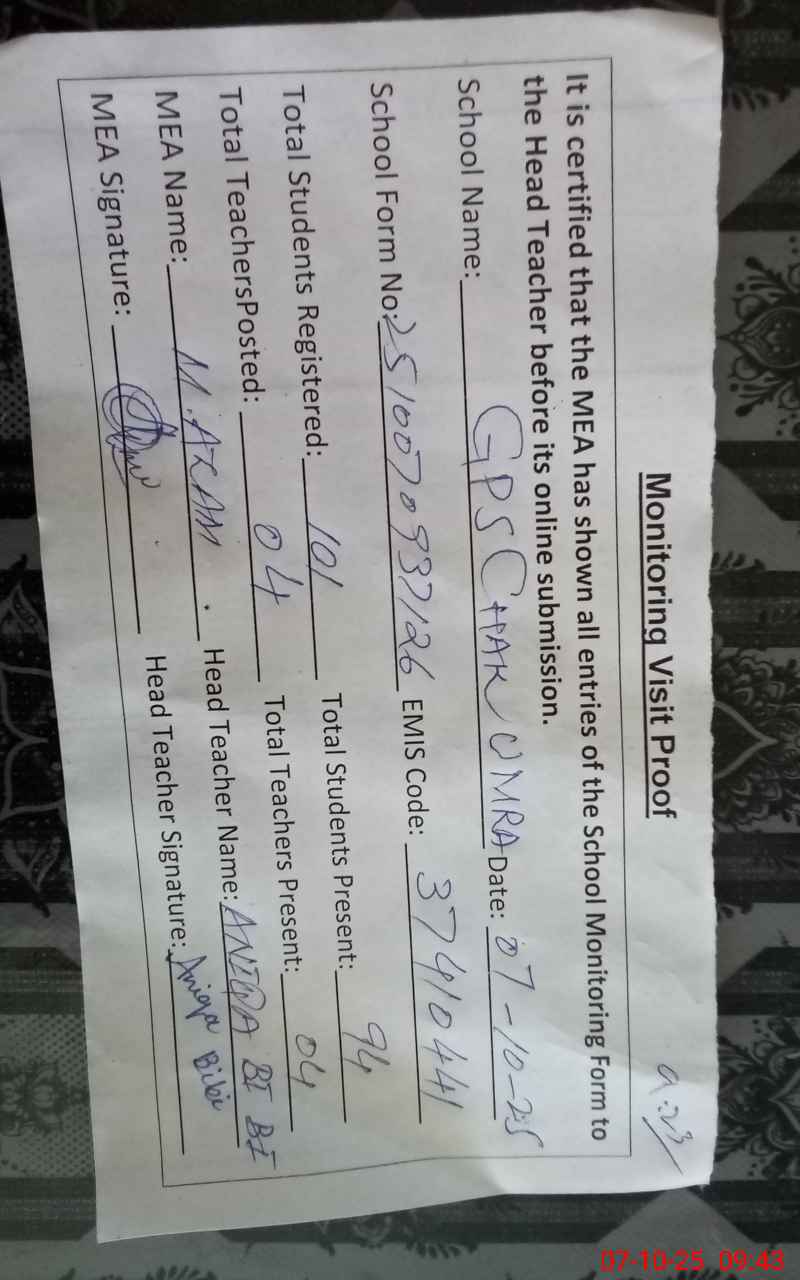 Monitoring Visit Proof
9:23
It is certified that the MEA has shown all entries of the School Monitoring Form to
the Head Teacher before its online submission.
School Name: GPS CHAK UMRA Date: 07-10-25
School Form No: 2510070937126 EMIS Code: 37410441
Total Students Registered: 101 Total Students Present: 94
Total TeachersPosted: 04 Total Teachers Present: 04
MEA Name: M. AZAM . Head Teacher Name: ANIQA BI BI
MEA Signature: Head Teacher Signature: Aniqa Bibi
07-10-25 09:43